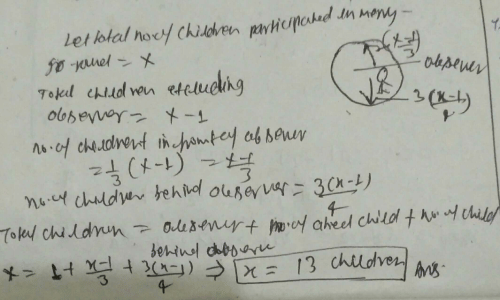 Let total no of children participated in merry-
go-round = x
Total children excluding
observer = x - 1
no. of children in front of observer
= 1/3 (x-1) = x-1/3
no. of children behind observer = 3(x-1)/4
Total children = observer + no. of ahead child + no. of child
behind observer
x = 1 + x-1/3 + 3(x-1)/4 ⇒ x = 13 children Ans.
(x-1/3)
observer
3(x-1)/4